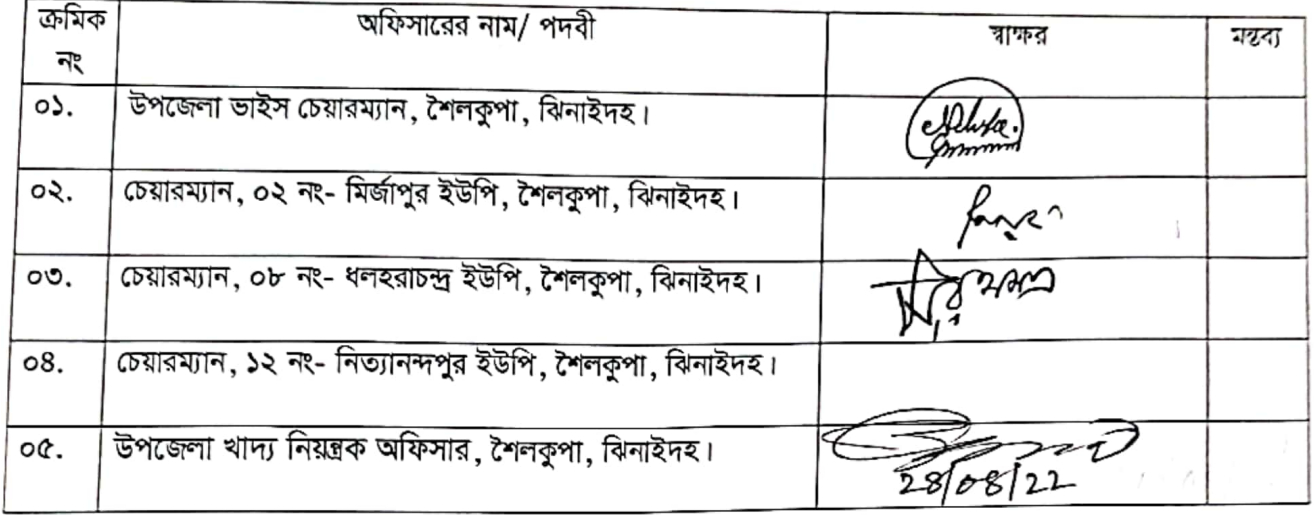 ক্রমিক নং অফিসারের নাম/ পদবী স্বাক্ষর মন্তব্য
০১. উপজেলা ভাইস চেয়ারম্যান, শৈলকুপা, ঝিনাইদহ।
০২. চেয়ারম্যান, ০২ নং- মির্জাপুর ইউপি, শৈলকুপা, ঝিনাইদহ।
০৩. চেয়ারম্যান, ০৮ নং- ধলহরাচন্দ্র ইউপি, শৈলকুপা, ঝিনাইদহ।
০৪. চেয়ারম্যান, ১২ নং- নিত্যানন্দপুর ইউপি, শৈলকুপা, ঝিনাইদহ।
০৫. উপজেলা খাদ্য নিয়ন্ত্রক অফিসার, শৈলকুপা, ঝিনাইদহ।
28/08/22